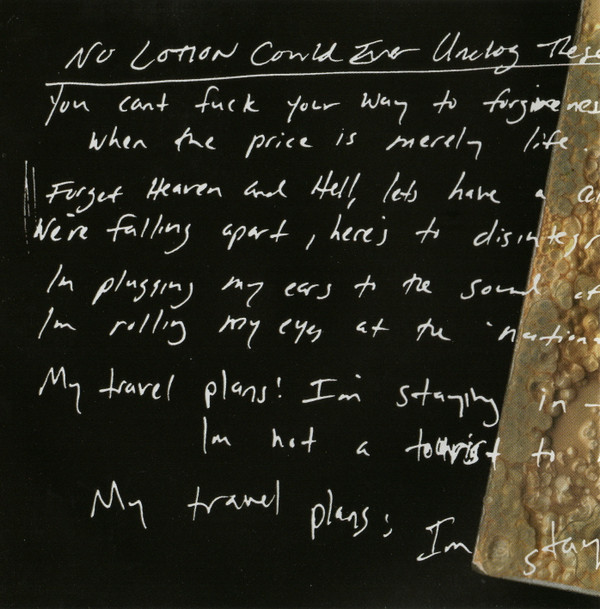 No Lotion Could Ever Unclog These
You cant fuck your way to forgiveness
when the price is merely life.
Forget Heaven and Hell, lets have a
We're falling apart, here's to disintegr
Im plugging my ears to the sound of
Im rolling my eyes at the "nation
My travel plans! I'm staying in
Im not a tourist to
My travel plans; Im stay